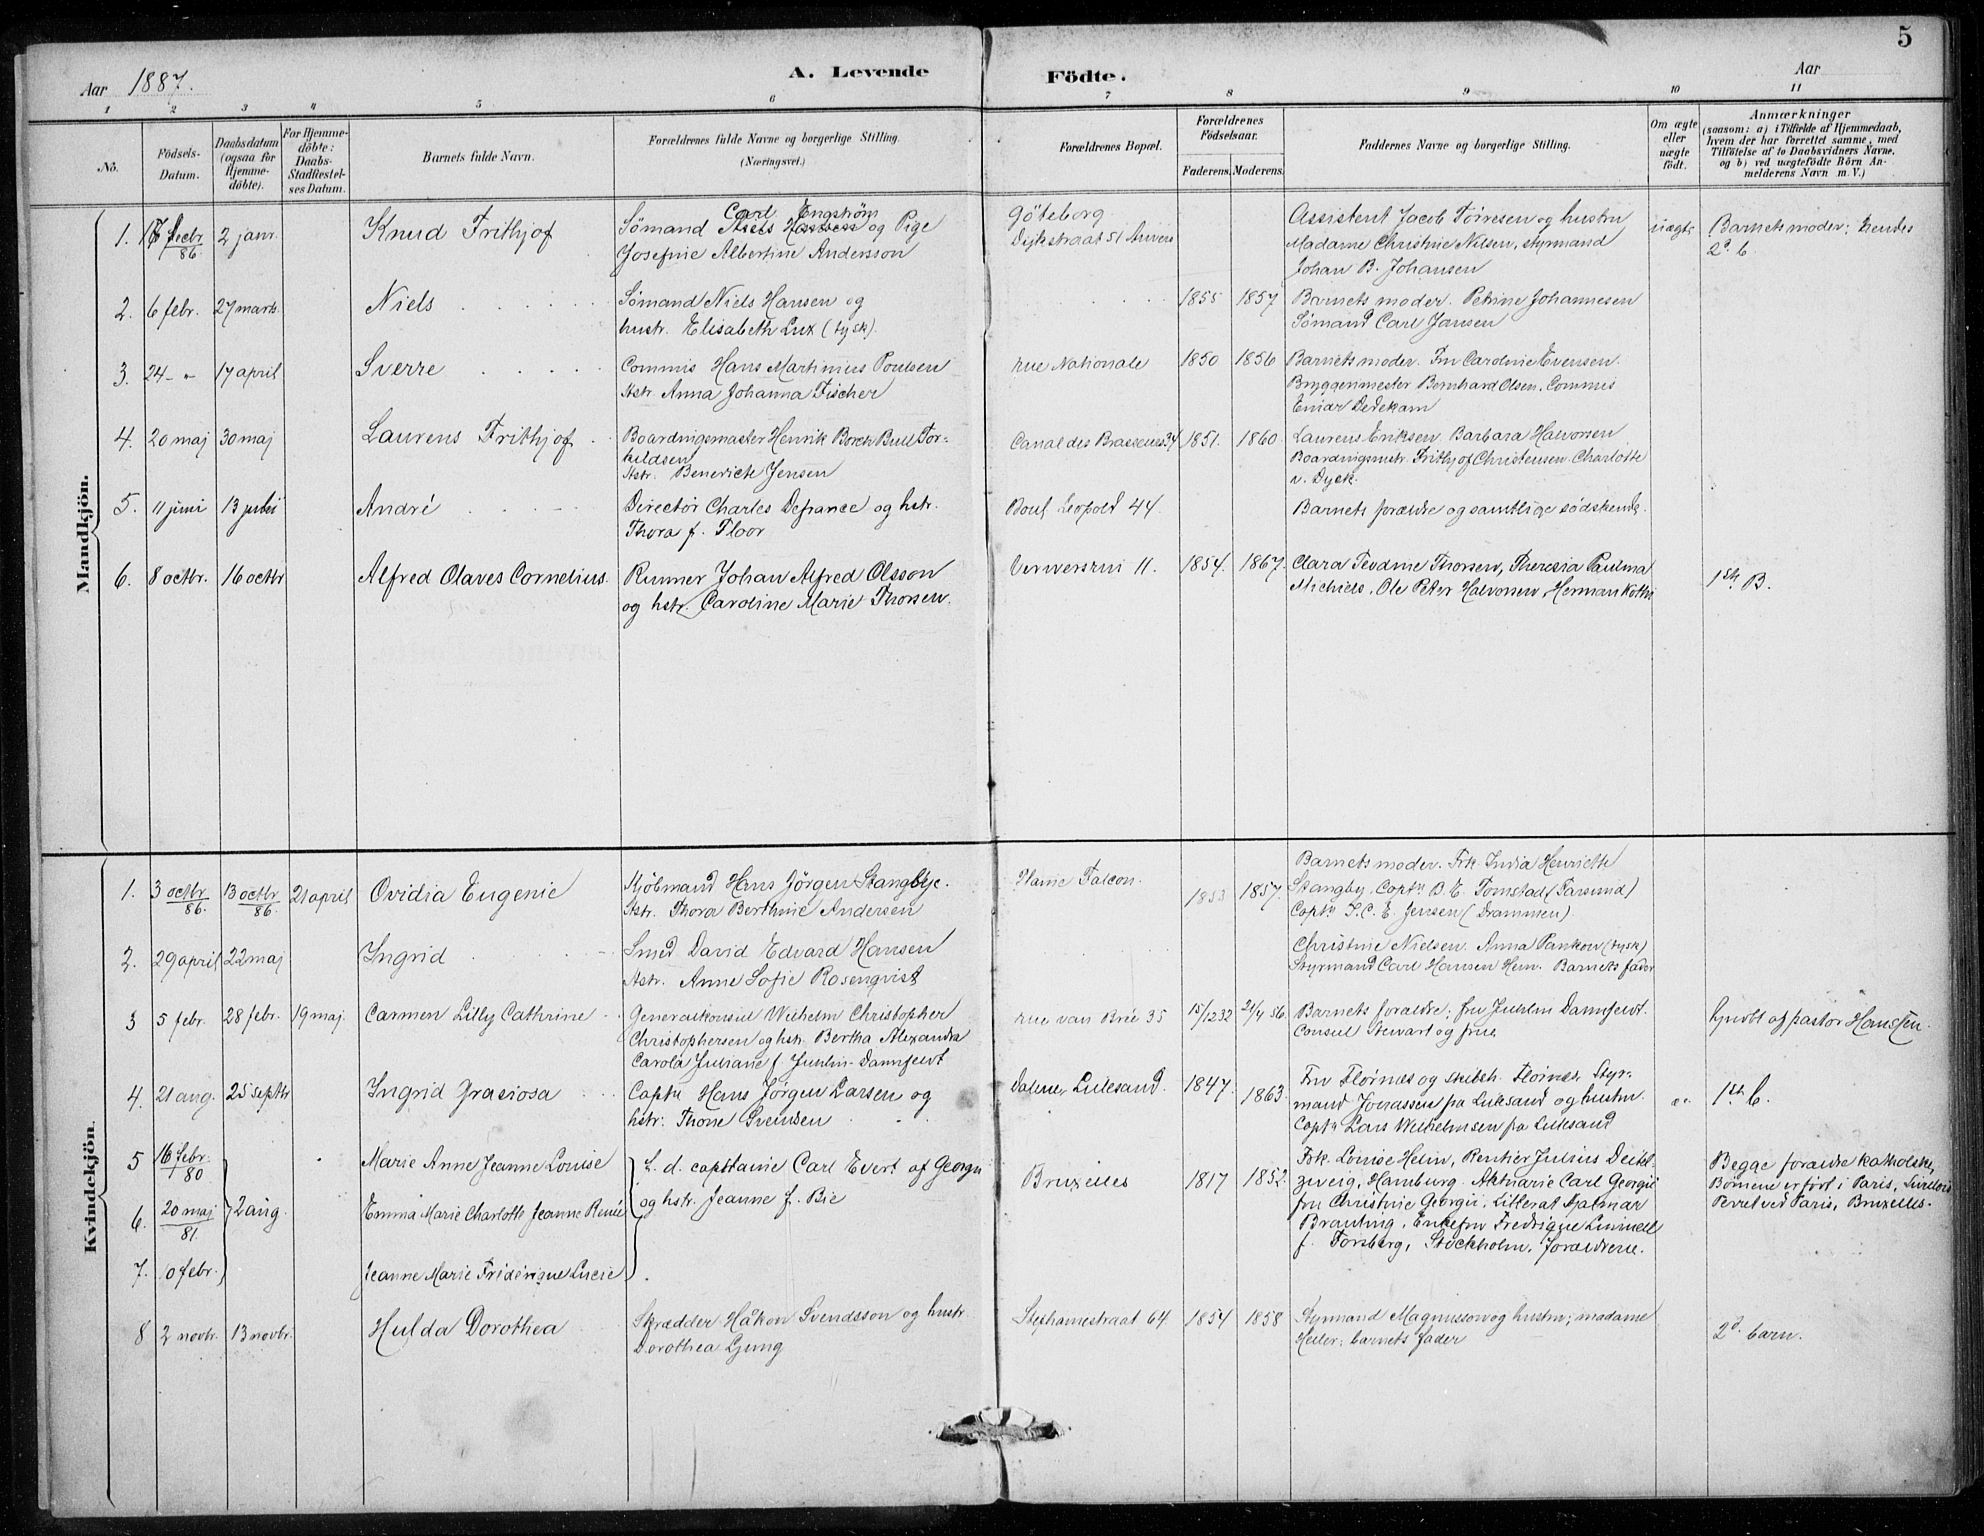 5
Aar 1887. A. Levende Födte. Aar
1 2 3 4 5 6 7 8 9 10 11
No.
Födsels-Datum.
Daabsdatum (ogsaa for Hjemmedöbte).
For Hjemmedöbte: Daabs-Stadfestelses Datum.
Barnets fulde Navn.
Forældrenes fulde Navne og borgerlige Stilling.
(Næringsvei.)
Forældrenes Bopæl.
Forældrenes Födselsaar.
Faderens. Moderens.
Faddernes Navne og borgerlige Stilling.
Om ægte eller uægte födt.
Anmærkninger
(saasom: a) i Tilfælde af Hjemmedaab,
hvem der har forrettet samme, med
Tilföielse af to Daabsvidners Navne,
og b) ved uægtefödte Börn Anmelderens Navn m. V.)
Mandkjön.
1. decbr. 86. 2 janr. Knud Frithjof
Carl Engström
Sømand og Pige
Josefine Albertine Andersson
Göteborg.
Dijkstraat 51 Anvers
Assistent Jacob Törresen og hustru
Madame Christine Nilsen, styrmand
Johan B. Johansen
uægte
Barnets moder; hendes
2d. b.
2. 6 febr. 27 marts. Niels
Sømand Niels Hansen og
hustr. Elisabeth Lux (tysk).
1855 1857
Barnets moder. Petrine Johannesen
Sømand Carl Jansen
3. 24 - " 17 april Sverre
Commis Hans Martinius Poulsen
Hstr. Anna Johanna Fischer
rue Nationale 1850 1856
Barnets moder. Fru Caroline Evensen.
Bryggerimester Bernhard Olsen, Commis
Einar Dedekam
4. 20 maj 30 maj Laurens Frithjof
Boardingmaster Henrik Borch Bull Tor-
kildsen
Hstr. Benedicte Jensen
Canal des Brasseurs 34 1851. 1860
Laurens Eriksen. Barbara Halvorsen
Boardingmstr. Frithjof Christensen. Charlotte
v. Dyck.
5. 11 juni 13 juli André
Director Charles Defrance og hstr.
Thora f. Floor
Boul Leopold 44.
Barnets forældre og samtlige sødskende.
6. 8 octbr. 16 octbr Alfred Olaves Cornelius.
Runner Johan Alfred Olsson
og hstr. Caroline Marie Thorsen.
Verversrui 11. 1854. 1867.
Clara Tevdine Thorsen, Theresia Paulina
Michiels, Ole Peter Halvorsen, Herman
1ste B.
Kvindekjön.
1. 3 octbr 86. 13 octbr 86. 21 april Ovidia Eugenie
Kjöbmand Hans Jörgen Stangbye.
Hstr. Thora Berthine Andersen
Plaine Falcon. 1853 1857.
Barnets moder. Frk. India Henriette
Stangby. Captn B. E. Tomstad (Farsund)
Captn S. C. E. Jensen (Drammen)
2. 29 april 22 maj Ingrid
Smed David Edvard Hansen
Hstr. Anne Sofie Rosenqvist
Christine Nielsen. Anna Pankow (tysk)
Styrmand Carl Hansen Hem. Barnets fader
3 5 febr. 28 febr. 19 maj. Carmen Lilly Cathrine
Generalkonsul Wilhelm Christopher
Christophersen og hstr. Bertha Alexandra
Carola Juliane f. Juhlin-Dannfelt
rue van Brée 35 15/12 32 21/4 56.
Barnets forældre; fru Juhlin Dannfelt.
Consul Stewart og frue
hjdbt af pastor Hanssen.
4. 21 aug. 25 septbr Ingrid Grasiosa
Captn Hans Jørgen Larsen og
hstr. Thone Sveinsen
Dalene, Lillesand. 1847. 1863.
Fru Flørnæs og skibsh. Flörnæs, Styr-
mand Jonassen fra Lillesand og hustru.
Captn Lars Wilhelmsen fra Lillesand
æ.
1ste b.
5 16 febr. 80 Marie Anne Jeanne Louise
f. d. capitaine Carl Evert af Georgii
og hstr. Jeanne f. Bie
Bruxelles 1817 1852.
Frk. Louise Helm, Rentier Julius Deitel-
zweig, Hamburg. Aktuarie Carl Georgii
fru Christine Georgii, Litterat Hjalmar
Branting, Enkefru Fredrique Linnell
f. Forsberg, Stockholm, forældrene.
Begge forældre katholske,
Børnene er født i Paris,
Perret ved Paris, Bruxelles.
6. 20 maj 81. 2 aug. Emma Marie Charlotte Jeanne Renée
7. 0 febr. Jeanne Marie Friderique Lucie
8 2 novbr. 13 novbr. Hulda Dorothea
Skrædder Håkon Svendsson og hustr.
Dorothea Ljung
Stephaniestraat 64 1854 1858
Styrmand Magnusson og hustru; madame
Heiler; barnets fader
2d. barn.